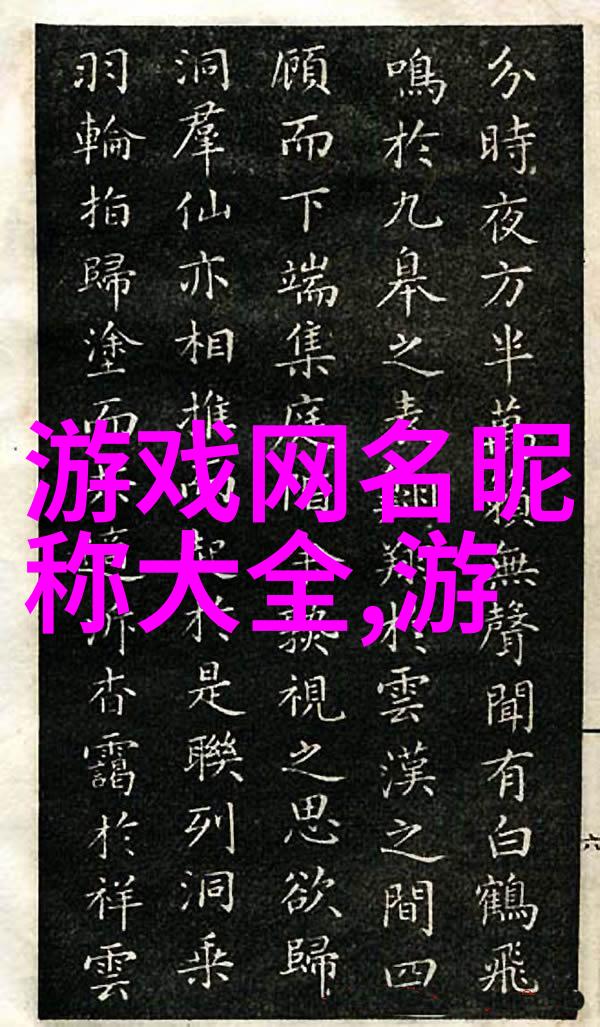 分時夜方半萬籟無聲聞有白鶴飛
鳴於九皋之翔於雲漢之間四
顧而下端集庭視之思欲歸
洞羣仙亦相推而起於是聯列洞乘
羽輪拍歸塗而杳靄於祥雲
六
游戏网名昵
称大全,游